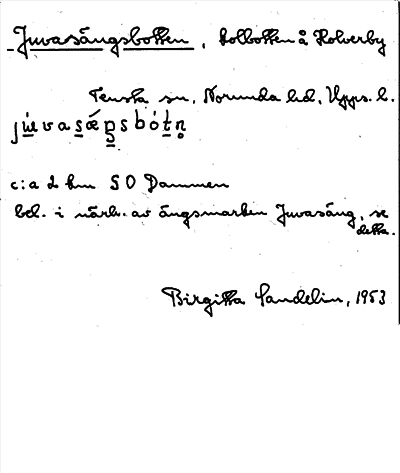 Juvasängsbotten, Kolbotten å Holverby
Tensta sn, Norunda hd, Upps. l.
ju̇vasǽŋsbótn̥
c:a 2 km SO Dammen
bel. i närh. av ängsmarken Juvasäng, se
detta.
Birgitta Sandelin, 1953